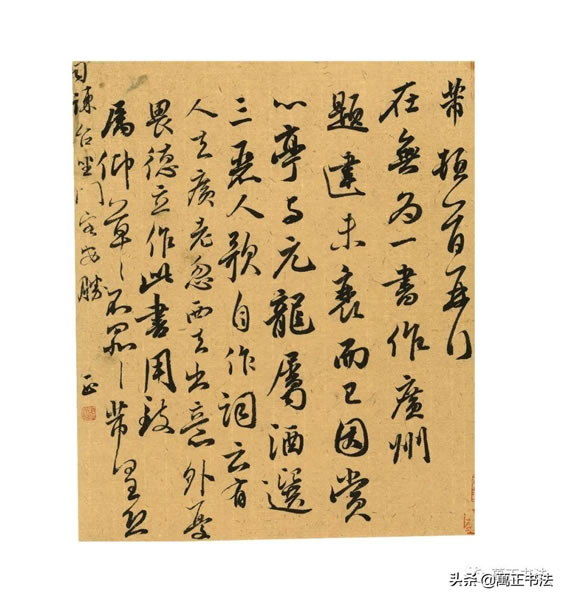 芾頓首再拜
在無為一書作廣州
題達未衰而已因賞
心亭与元龍屬酒選
三惡人歌自作詞云有
人去廣老忽西去出意外辱
畏德立作此書用致
屬仰草々不罪々芾皇恐
司諫台坐門客安勝
正
萬正书法
头条 @萬正书法